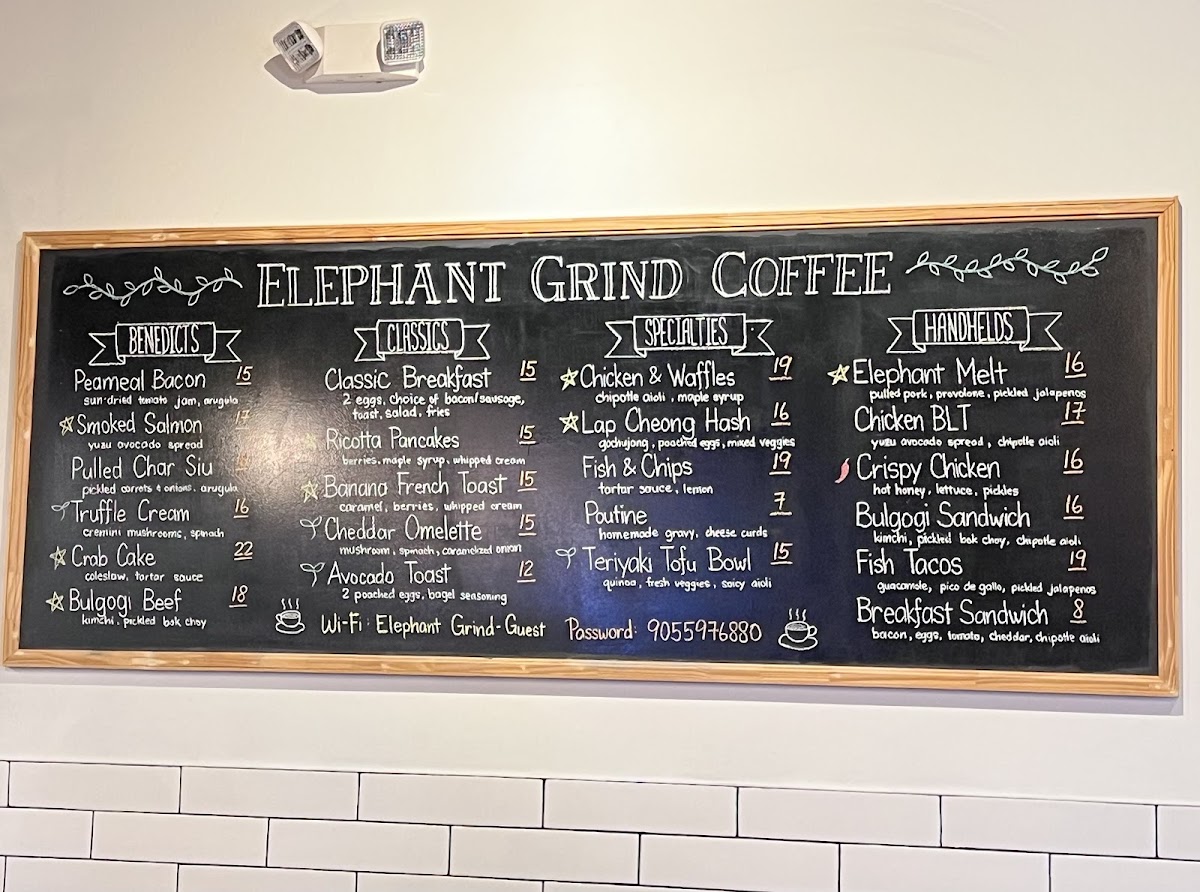 ELEPHANT GRIND COFFEE
BENEDICTS
Peameal Bacon 15
sun-dried tomato jam, arugula
Smoked Salmon 17
yuzu avocado spread
Pulled Char Siu
pickled carrots & onions, arugula
Truffle Cream 16
cremini mushrooms, spinach
Crab Cake 22
coleslaw, tartar sauce
Bulgogi Beef 18
kimchi, pickled bok choy
CLASSICS
Classic Breakfast 15
2 eggs, choice of bacon/sausage,
toast, salad, fries
Ricotta Pancakes 15
berries, maple syrup, whipped cream
Banana French Toast 15
caramel, berries, whipped cream
Cheddar Omelette 15
mushroom, spinach, caramelized onion
Avocado Toast 12
2 poached eggs, bagel seasoning
SPECIALTIES
Chicken & Waffles 19
chipotle aioli, maple syrup
Lap Cheong Hash 16
gochujang, poached eggs, mixed veggies
Fish & Chips 19
tartar sauce, lemon
Poutine 7
homemade gravy, cheese curds
Teriyaki Tofu Bowl 15
quinoa, fresh veggies, spicy aioli
HANDHELDS
Elephant Melt 16
pulled pork, provolone, pickled jalapenos
Chicken BLT 17
yuzu avocado spread, chipotle aioli
Crispy Chicken 16
hot honey, lettuce, pickles
Bulgogi Sandwich 16
kimchi, pickled bok choy, chipotle aioli
Fish Tacos 19
guacamole, pico de gallo, pickled jalapenos
Breakfast Sandwich 8
bacon, eggs, tomato, cheddar, chipotle aioli
Wi-Fi: Elephant Grind-Guest Password: 9055976880